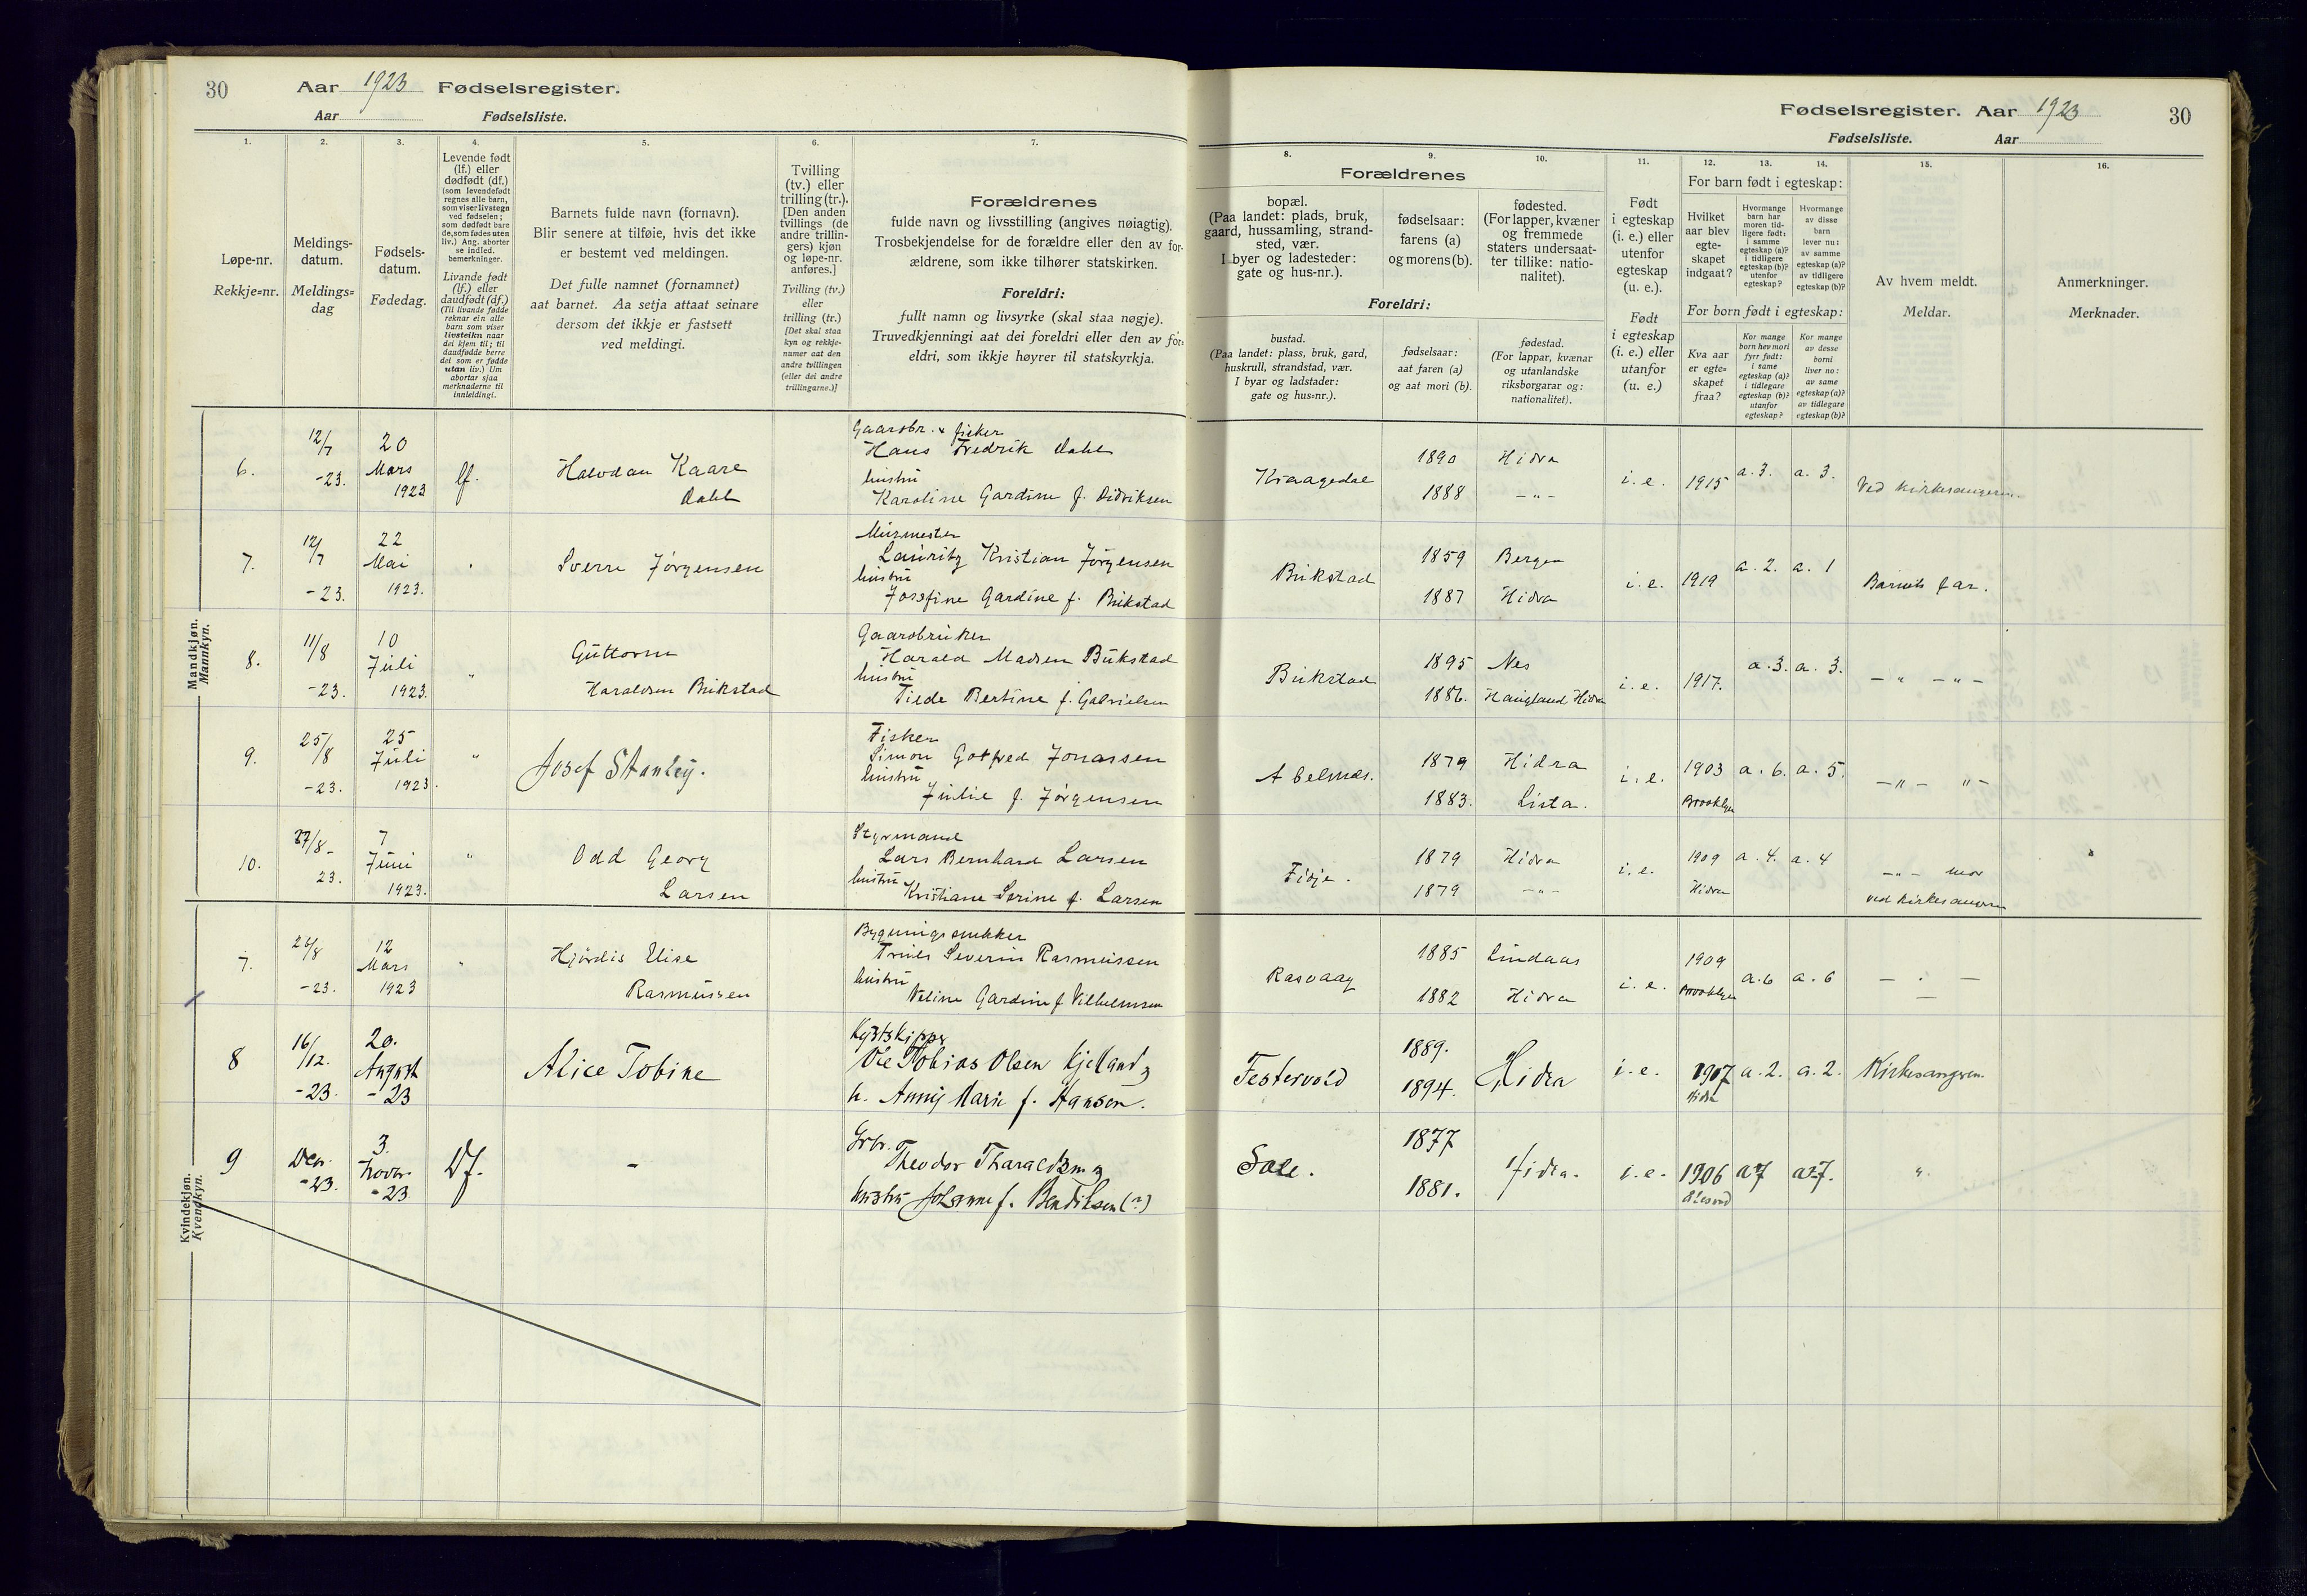 30 Aar 1923 Fødselsregister.
Aar Fødselsliste.
1. 2. 3. 4. 5. 6. 7.
Løpe-nr.
Rekkje=nr.
Meldings-
datum.
Meldings=
dag
Fødsels-
datum.
Fødedag.
Levende født
(lf.) eller
dødfødt (df.)
(som levendefødt
regnes alle barn,
som viser livstegn
ved fødselen;
som dødfødt bare
de, som fødes uten
liv.) Ang. aborter
se indled.
bemerkninger.
Livande født
(lf.) eller
daudfødt (df.)
(Til livande fødde
reknar ein alle
barn som viser
livsteikn naar
dei kjem til; til
daudfødde berre
dei som er fødde
utan liv.) Um
abortar sjaa
merknaderne til
innleidingi.
Barnets fulde navn (fornavn).
Blir senere at tilføie, hvis det ikke
er bestemt ved meldingen.
Det fulle namnet (fornamnet)
aat barnet. Aa setja attaat seinare
dersom det ikkje er fastsett
ved meldingi.
Tvilling
(tv.) eller
trilling (tr.).
[Den anden
tvillings (de
andre trillin-
gers) kjøn
og løpe-nr.
anføres.]
Tvilling (tv.)
eller
trilling (tr.)
[Det skal staa
kyn og rekkje-
numer aat den
andre tvillingen
(eller dei andre
trillingarne.)]
Forældrenes
fulde navn og livsstilling (angives nøiagtig).
Trosbekjendelse for de forældre eller den av for-
ældrene, som ikke tilhører statskirken.
Foreldri:
fullt namn og livsyrke (skal staa nøgje).
Truvedkjenningi aat dei foreldri eller den av for-
eldri, som ikkje høyrer til statskyrkja.
Mandkjøn.
Mannkyn.
6.
12/7
-23.
20
Mars
1923
lf.
Halvdan Kaare
Dahl
Gaardbr. & fisker
Hans Fredrik Dahl
hustru
Karoline Gardine f. Didriksen
7.
12/7
-23.
22
Mai
1923.
"
Sverre Jørgensen
Murmester
Lauritz Kristian Jørgensen
hustru
Josefine Gardine f. Brikstad
8.
11/8
-23.
10
Juli
1923.
"
Guttorm
Haraldsen Brikstad
Gaardbruker
Harald Madsen Bukstad
hustru
Tiede Bertine f. Gabrielsen
9.
25/8
-23.
25
Juli
1923.
"
Josef Stanley.
Fisker
Simon Gotfred Jonassen
hustru
Julie f. Jørgensen
10.
27/8-
23.
7
Juni
1923.
"
Odd Georg
Larsen
Styrmand
Lars Bernhard Larsen
hustru
Kristiane Serine f. Larsen
7.
26/8
-23.
12
Mars
1923
"
Hjørdis Elise
Rasmussen
Bygningssnekker
Truls Severin Rasmussen
hustru
Veline Gardine f Vilhelmsen
8
16/12.
-23.
20.
August
-23
Alice Tobine
Kystskipper
Ole Tobias Olsen Kjelland og
h. Anny Marie f. Hansen.
Kvindekjøn.
Kvendkyn.
9
Des.
-23.
3.
Novbr.
-23.
Df.
-
Grbr.
Theodor Tharaldsen og
hustru Johanne f. Bendiksen (?)
Fødselsregister. Aar 1923 30
Fødselsliste. Aar
8. 9. 10. 11. 12. 13. 14. 15. 16.
Forældrenes
bopæl.
(Paa landet: plads, bruk,
gaard, hussamling, strand-
sted, vær.
I byer og ladesteder:
gate og hus-nr.).
fødselsaar:
farens (a)
og morens (b).
fødested.
(For lapper, kvæner
og fremmede
staters undersaat-
ter tillike: natio-
nalitet).
Foreldri:
bustad.
(Paa landet: plass, bruk, gard,
huskrull, strandstad, vær.
I byar og ladstader:
gate og hus=nr.).
fødselsaar:
aat faren (a)
og aat mori (b).
fødestad.
(For lappar, kvænar
og utanlandske
riksborgarar og:
nationalitet).
Født
i egteskap
(i. e.) eller
utenfor
egteskap
(u. e.).
Født
i egteskap
(i. e.) eller
utanfor
(u. e.)
For barn født i egteskap:
Hvilket
aar blev
egte-
skapet
indgaat?
Hvormange
barn har
moren tid-
ligere født:
i samme
egteskap (a)?
i tidligere
egteskap (b)?
utenfor
egteskap?
Hvormange
av disse
barn
lever nu:
av samme
egteskap (a)?
av tidligere
egteskap (b)?
For born født i egteskap:
Kva aar
er egte=
skapet
fraa?
Kor mange
born hev mori
fyrr født:
i same
egteskap (a)?
i tidlegare
egteskap (b)?
utanfor
egteskap?
Kor mange
av desse
borni
liver no:
av same
egteskap (a)?
av tidlegare
egteskap (b)?
Av hvem meldt.
Meldar.
Anmerkninger.
Merknader.
Kraagedal
1890
1888
Hidra
-"-
i. e. 1915 a. 3. a. 3. Ved kirkesangeren.
Brikstad
1859
1887
Bergen
Hidra
i. e. 1919 a. 2. a. 1 Barnets far.
Bukstad
1895
1886.
Nes
Haugland Hidra
i. e. 1917. a. 3. a. 3. -"- -"-
Abelnes.
1879
1883.
Hidra
Lista.
i. e. 1903 a. 6. a. 5. -"- "-
Brooklyn
Fidje.
1879
1879
Hidra
-"-
i. e. 1909 a. 4. a. 4 -"- mor
Hidra
ved kirkesangeren
Rasvaag
1885
1882
Lindaas
Hidra
i. e. 1909 a. 6 a. 6 - " -
Brooklyn
Festervold
1889.
1894.
Hidra
i. e. 1917 a. 2. a. 2. Kirkesangeren
Hidra
Sale.
1877
1881.
Hidra.
i. e. 1906 a 7 a 7. "